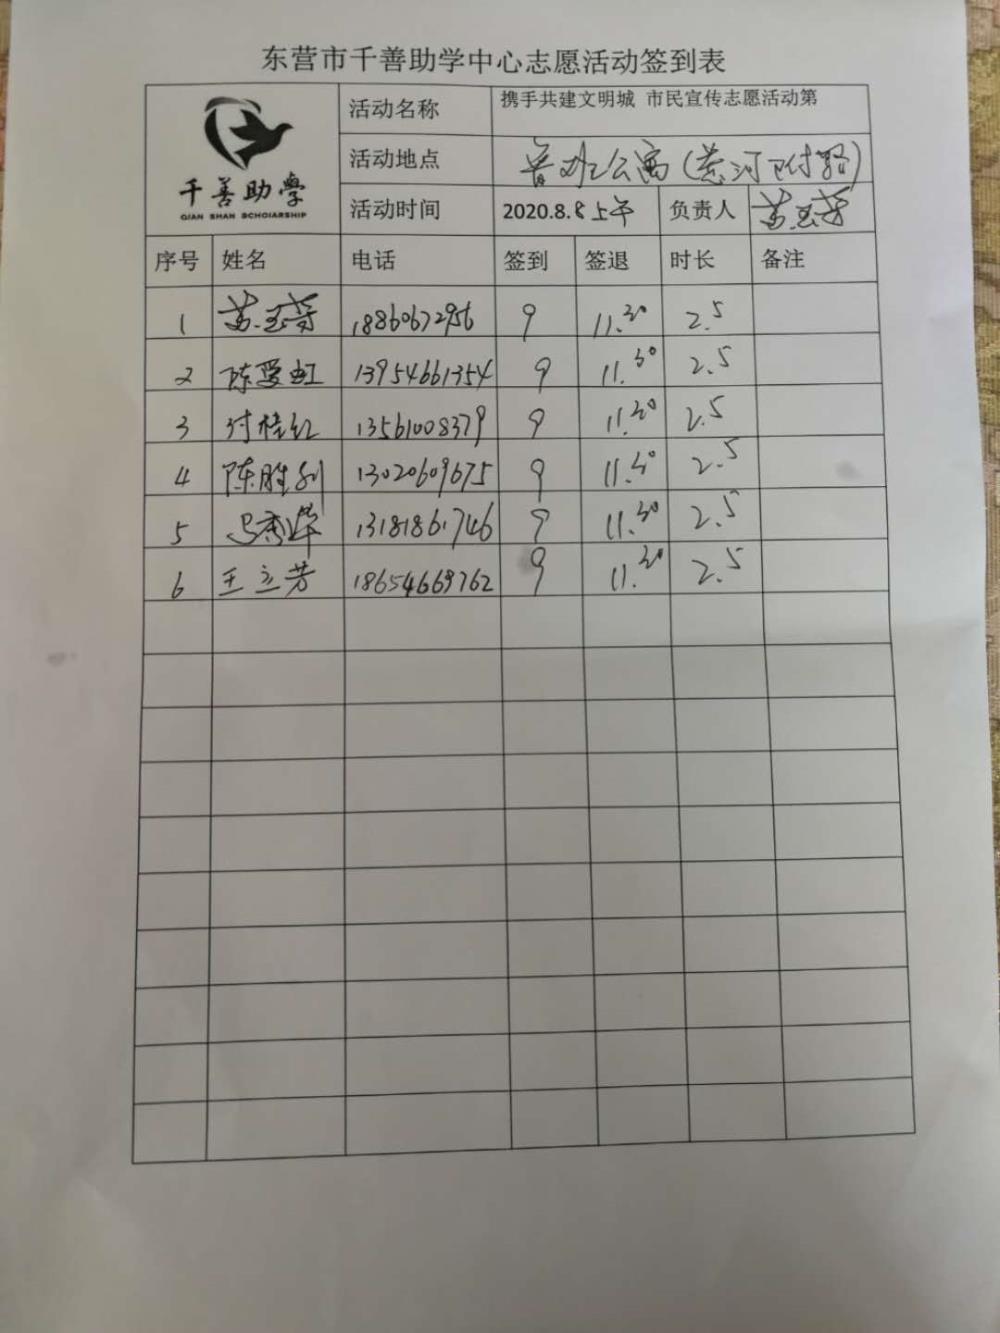 东营市千善助学中心志愿活动签到表
千善助学
QIAN SHAN SCHOIARSHIP
活动名称 携手共建文明城 市民宣传志愿活动第
活动地点 公寓(黄河 附 路)
活动时间 2020.8.8上午 负责人 苏玉芳
序号 姓名 电话 签到 签退 时长 备注
1 苏玉芳 18860672956 9 11.30 2.5
2 陈爱虹 13954661354 9 11.30 2.5
3 付桂红 13561008379 9 11.30 2.5
4 陈胜利 13020609675 9 11.30 2.5
5 马秀华 13181861746 9 11.30 2.5
6 王立芳 18654669762 9 11.30 2.5